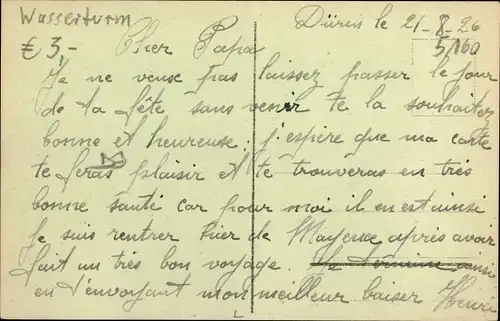 Wasserturm
Düren le 21-8-26
€ 3,-
5/160
Cher Papa
Je ne veux pas laissez passer le jour
de ta fête sans venir te la souhaitez
bonne et heureuse; j'espère que ma carte
te feras plaisir et te trouveras en très
bonne santé car pour moi il en est ainsi
Je suis rentrer hier de Mayence après avoir
fait un très bon voyage. Je termine ainsi
en t'envoyant mon meilleur baiser Henri